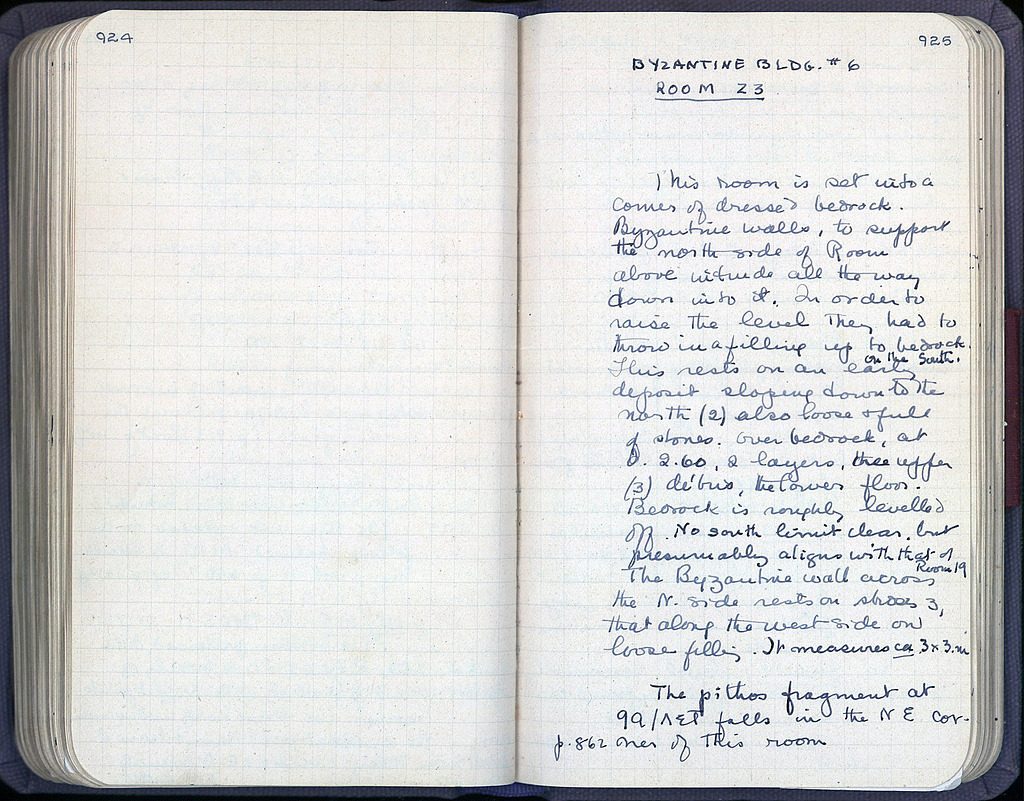 924
925
BYZANTINE BLDG. # 6
ROOM 23
This room is set into a
corner of dressed bedrock.
Byzantine walls, to support
the north side of Room
above intrude all the way
down into it. In order to
raise the level they had to
throw in a filling up to bedrock
on the South.
This rests on an early
deposit sloping down to the
north (2) also loose & full
of stones. Over bedrock, at
D. 2.60, 2 layers, the upper
(3) débris, the lower floor.
Bedrock is roughly levelled
off. No south limit clear, but
presumably aligns with that of
Room 19
The Byzantine wall across
the N. side rests on 3,
that along the west side on
loose filling. It measures ca 3 x 3. m
The pithos fragment at
99/ΛΕΤ falls in the NE cor-
p. 862 ner of this room